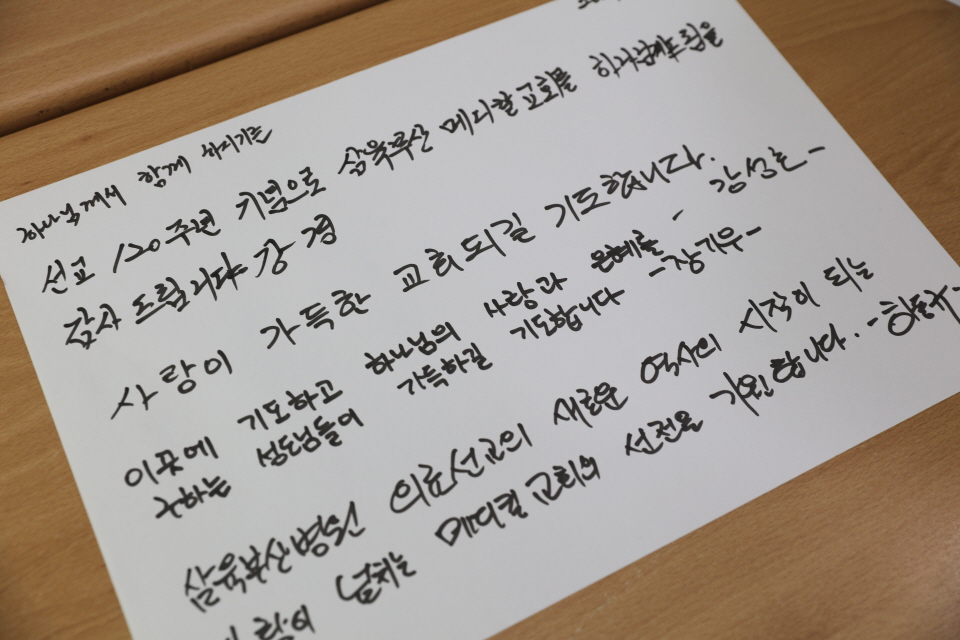 하나님께서 함께 하시기를
선교 120주년 기념으로 삼육부산 메디칼교회를 하나님께 드림을
감사드립니다 강 경
사랑이 가득한 교회되길 기도합니다. - 강성훈 -
이곳에 기도하고 하나님의 사랑과 은혜를
구하는 성도님들이 가득하길 기도합니다 -장기우-
삼육부산병원 의료선교의 새로운 역사의 시작이 되는
넘치는 메디컬교회의 선전을 기원합니다.